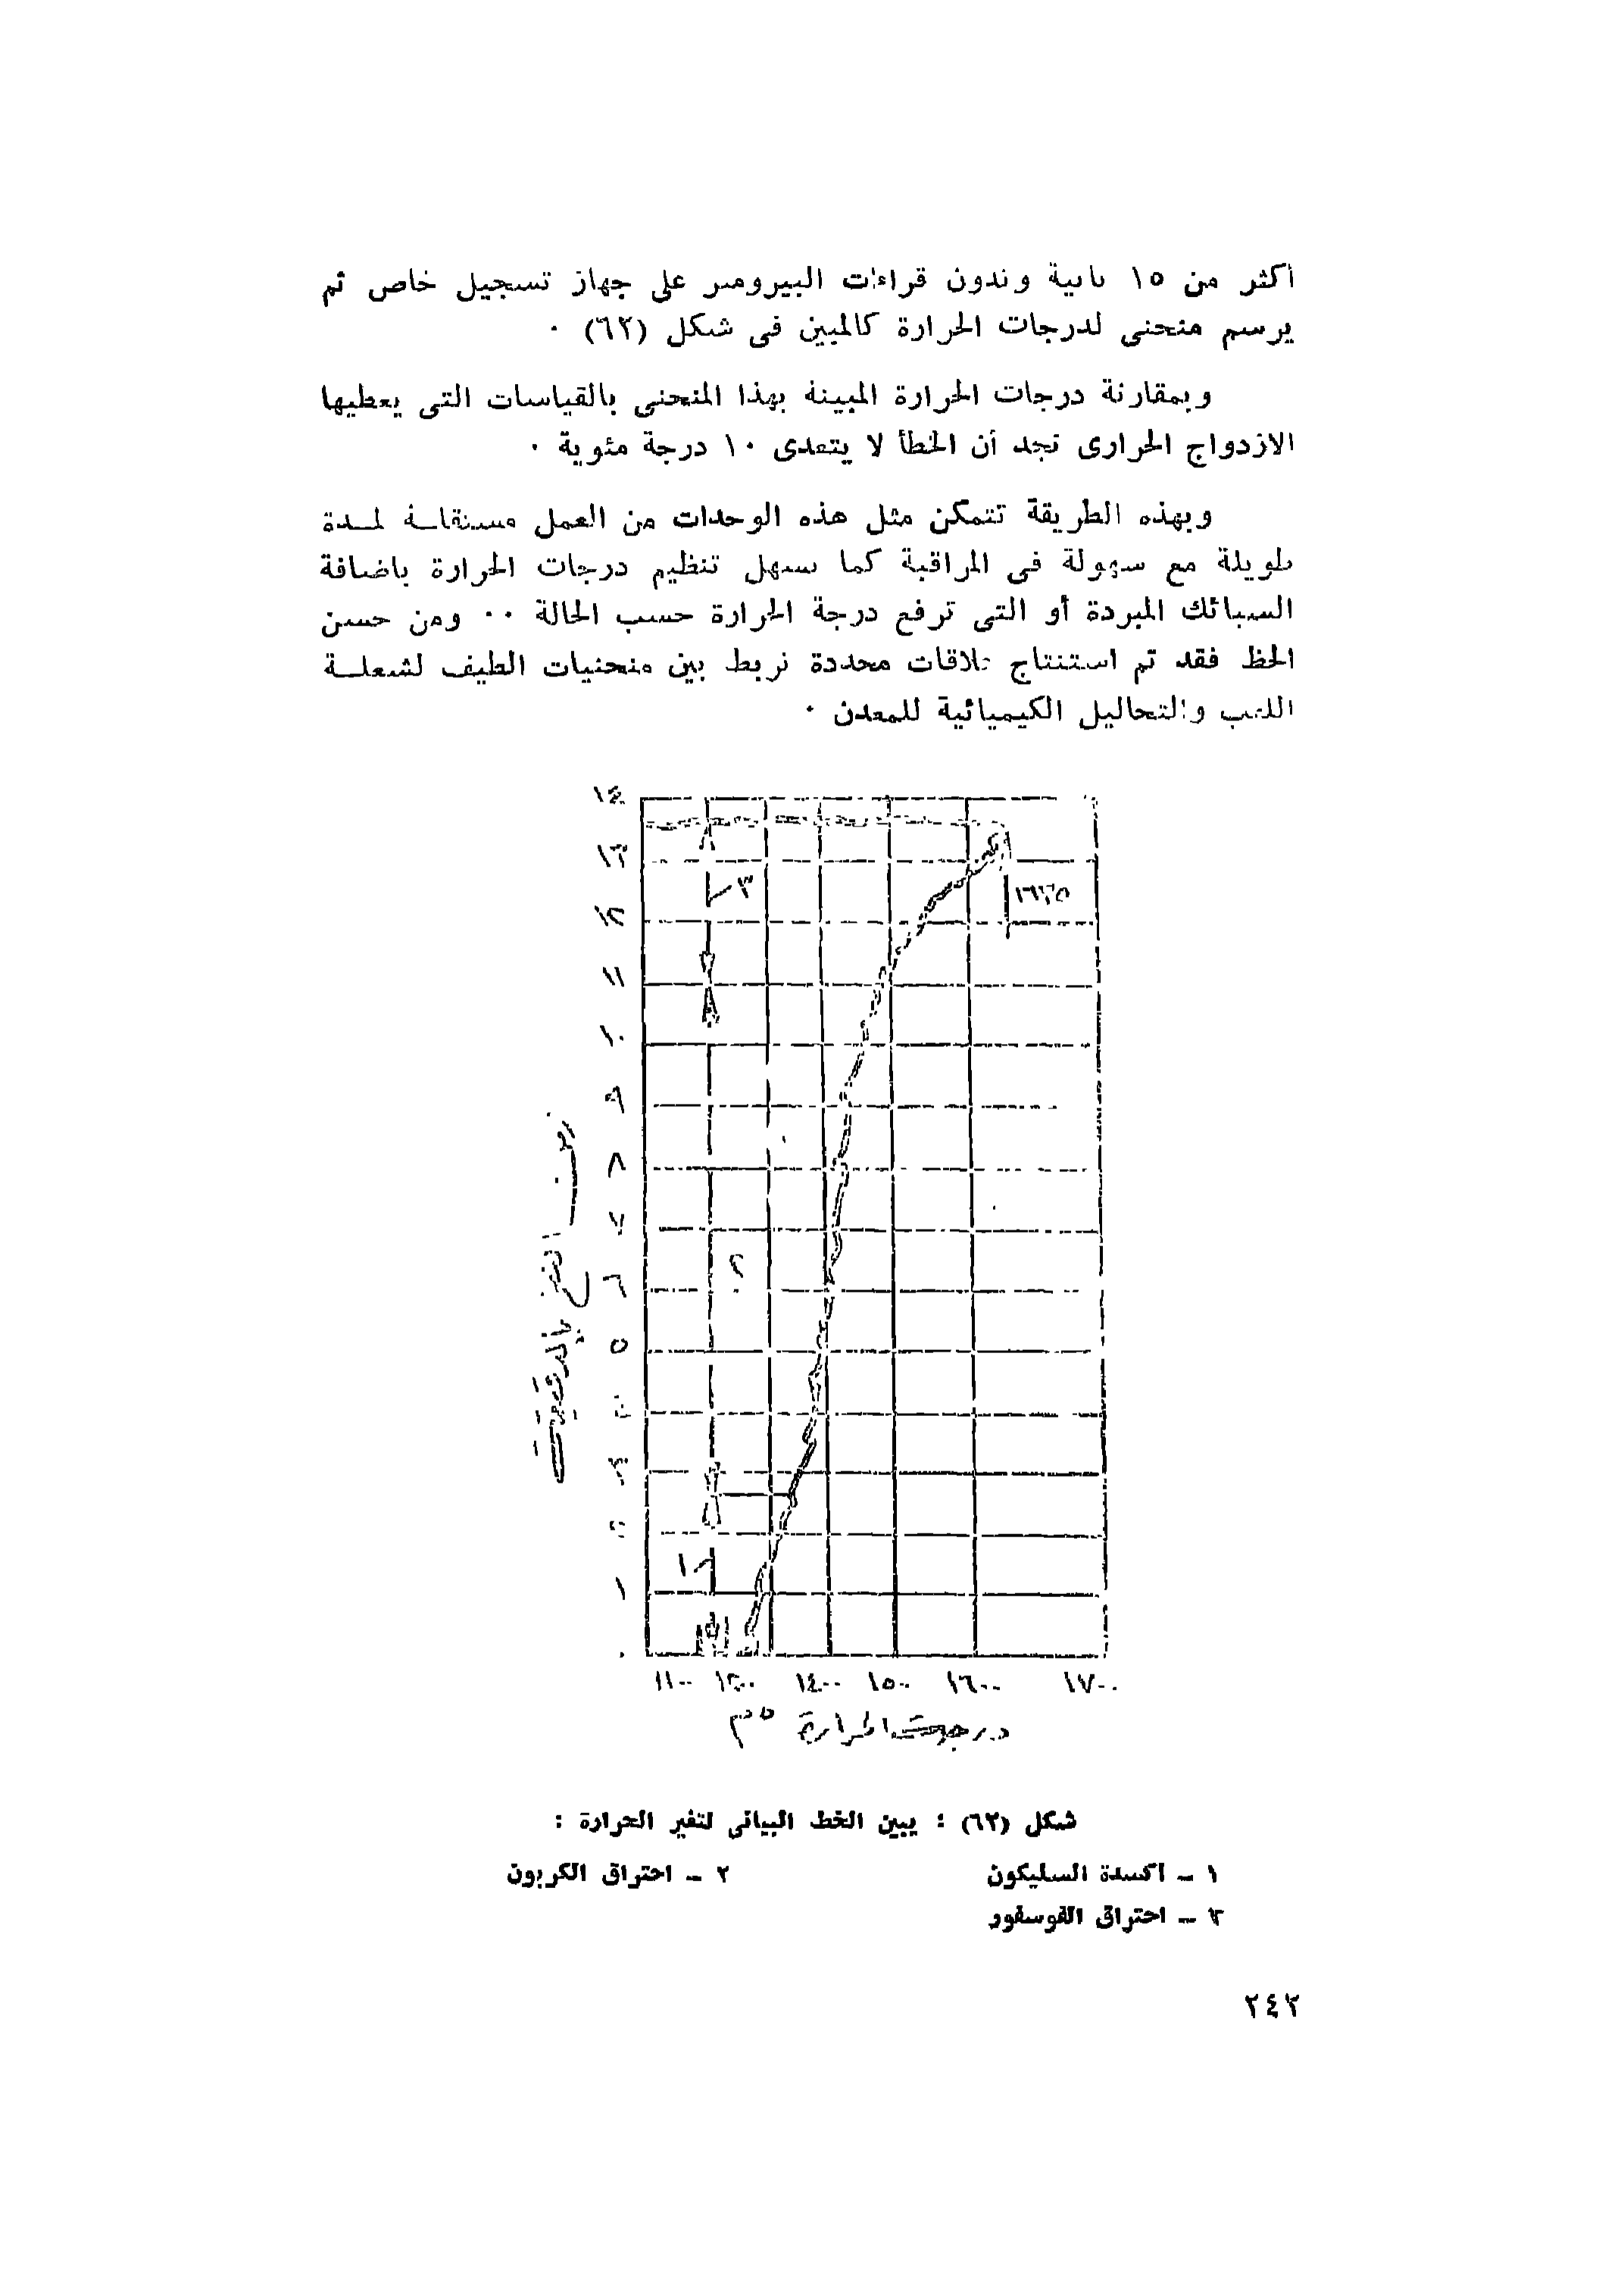 أكثر من ١٥ ثانية وتدون قراءات البيرومتر على جهاز تسجيل خاص ثم
يرسم منحنى لدرجات الحرارة كالمبين فى شكل (٦٢) ٠
وبمقارنة درجات الحرارة المبينة بهذا المنحنى بالقياسات التى يعطيها
الازدواج الحرارى نجد أن الخطأ لا يتعدى ١٠ درجة مئوية ٠
وبهذه الطريقة تتمكن مثل هذه الوحدات من العمل مستقلة لمدة
طويلة مع سهولة فى المراقبة كما يسهل تنظيم درجات الحرارة باضافة
السبائك المبردة أو التى ترفع درجة الحرارة حسب الحالة ٠٠ ومن حسن
الحظ فقد تم استنتاج علاقات محددة تربط بين منحنيات الطيف لشعلة
اللهب والتحاليل الكيميائية للمعدن ٠
١٤
١٣
١٢
١١
١٠
٩
٨
٧
٦
٥
٤
٣
٢
١
٠
٣
١٦٣٥
٢
١
زمن النفخ بالدقيقة
١١٠٠ ١٣٠٠ ١٤٠٠ ١٥٠٠ ١٦٠٠ ١٧٠٠
درجات الحرارة °م
شكل (٦٢) : يبين الخط البيانى لتغير الحرارة :
١ – أكسدة السليكون
٢ – احتراق الكربون
٣ – احتراق الفوسفور
٢٤٢